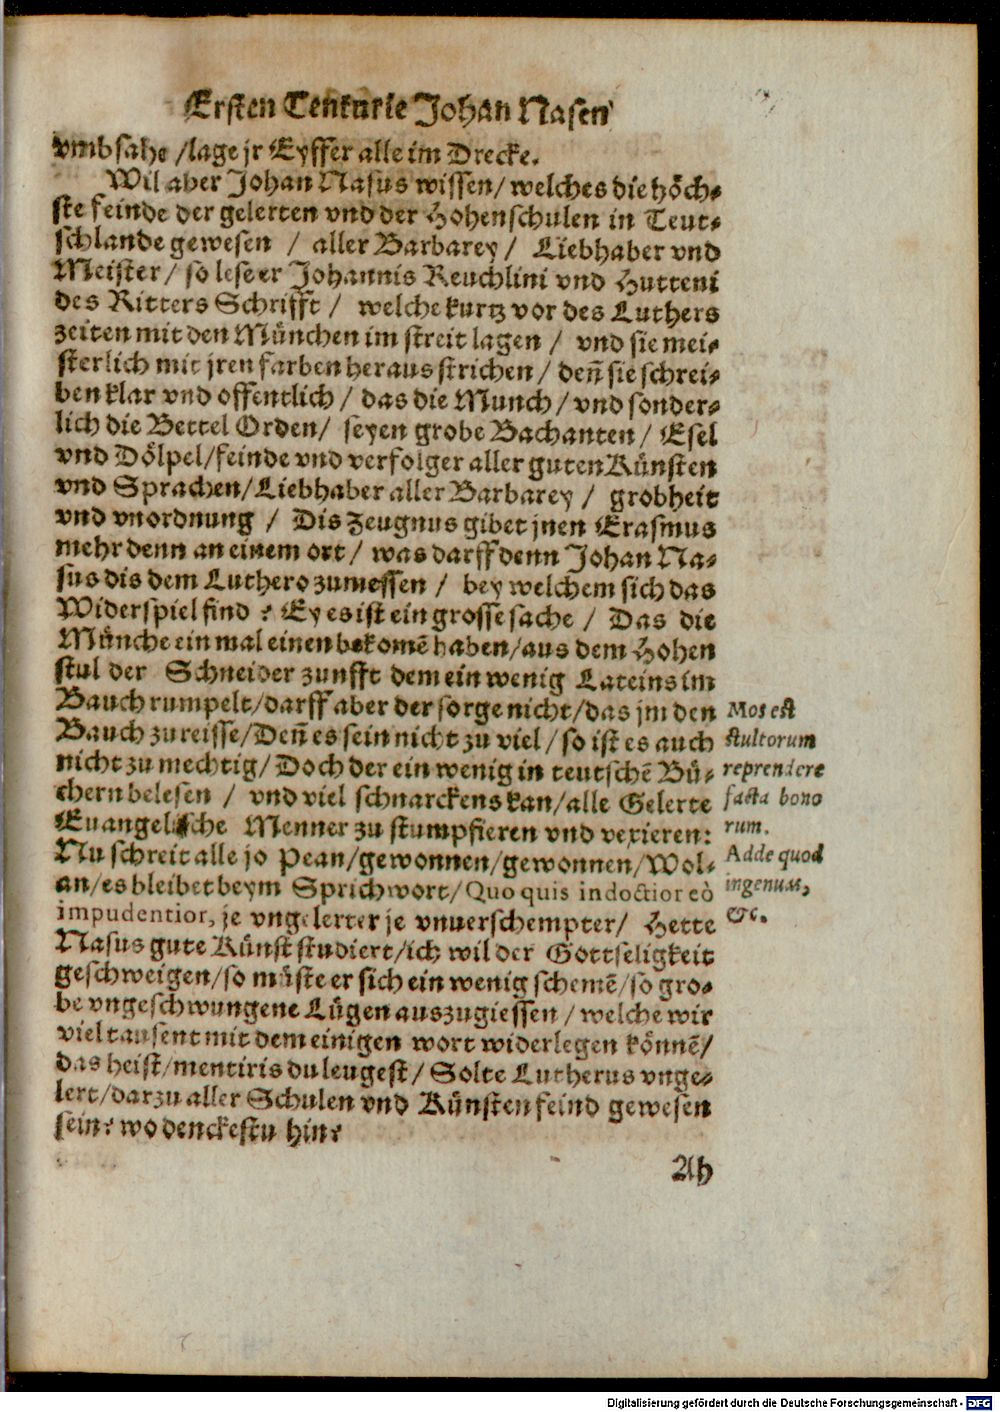 Ersten Centurie Johan Nasen
vmbsahe /lage jr Eyffer alle im Drecke.
Wil aber Johan Nasus wissen/ welches die höch-
ste feinde der gelerten vnd der Hohenschulen in Teut-
schlande gewesen / aller Barbarey / Liebhaber vnd
Meister/ so lese er Johannis Reuchlini vnd Hutteni
des Ritters Schrifft / welche kurtz vor des Luthers
zeiten mit den München im streit lagen / vnd sie mei-
sterlich mit jren farben heraus strichen / deñ sie schrei-
ben klar vnd offentlich / das die Munch / vnd sonder-
lich die Bettel Orden/ seyen grobe Bachanten / Esel
vnd Dölpel/feinde vnd verfolger aller guten Künsten
vnd Sprachen/Liebhaber aller Barbarey / grobheit
vnd vnordnung / Dis zeugnus gibet jnen Erasmus
mehr denn an einem ort / was darff denn Johan Na-
sus dis dem Luthero zumessen / bey welchem sich das
Widerspiel find ? Ey es ist ein grosse sache / Das die
Münche ein mal einen bekomē haben/aus dem Hohen
stul der Schneider zunfft dem ein wenig Lateins im
Bauch rumpelt/darff aber der sorge nicht/das jm den
Bauch zureisse/Deñ es sein nicht zu viel / so ist es auch
nicht zu mechtig/ Doch der ein wenig in teutschē Bü-
chern belesen / vnd viel schnarckens kan/alle Gelerte
Euangelische Menner zu stumpfieren vnd vexieren:
Nu schreit alle jo Pean/gewonnen/gewonnen/Wol-
an/es bleibet beym Sprichwort/Quo quis indoctior eò
impudentior, je vngelerter je vnuerschempter/ Hette
Nasus gute Künst studiert/ich wil der Gottseligkeit
geschweigen/so müste er sich ein wenig schemē/so gro-
be vngeschwungene Lügen auszugiessen / welche wir
viel tausent mit dem einigen wort widerlegen könnē/
das heist/mentiris du leugest/ Solte Lutherus vnge-
lert/darzu aller Schulen vnd Künsten feind gewesen
sein? wo denckestu hin?
Ah
Mos est
stultorum
reprendere
facta bono
rum.
Adde quod
ingenuas,
&c.
Digitalisierung gefördert durch die Deutsche Forschungsgemeinschaft - DFG